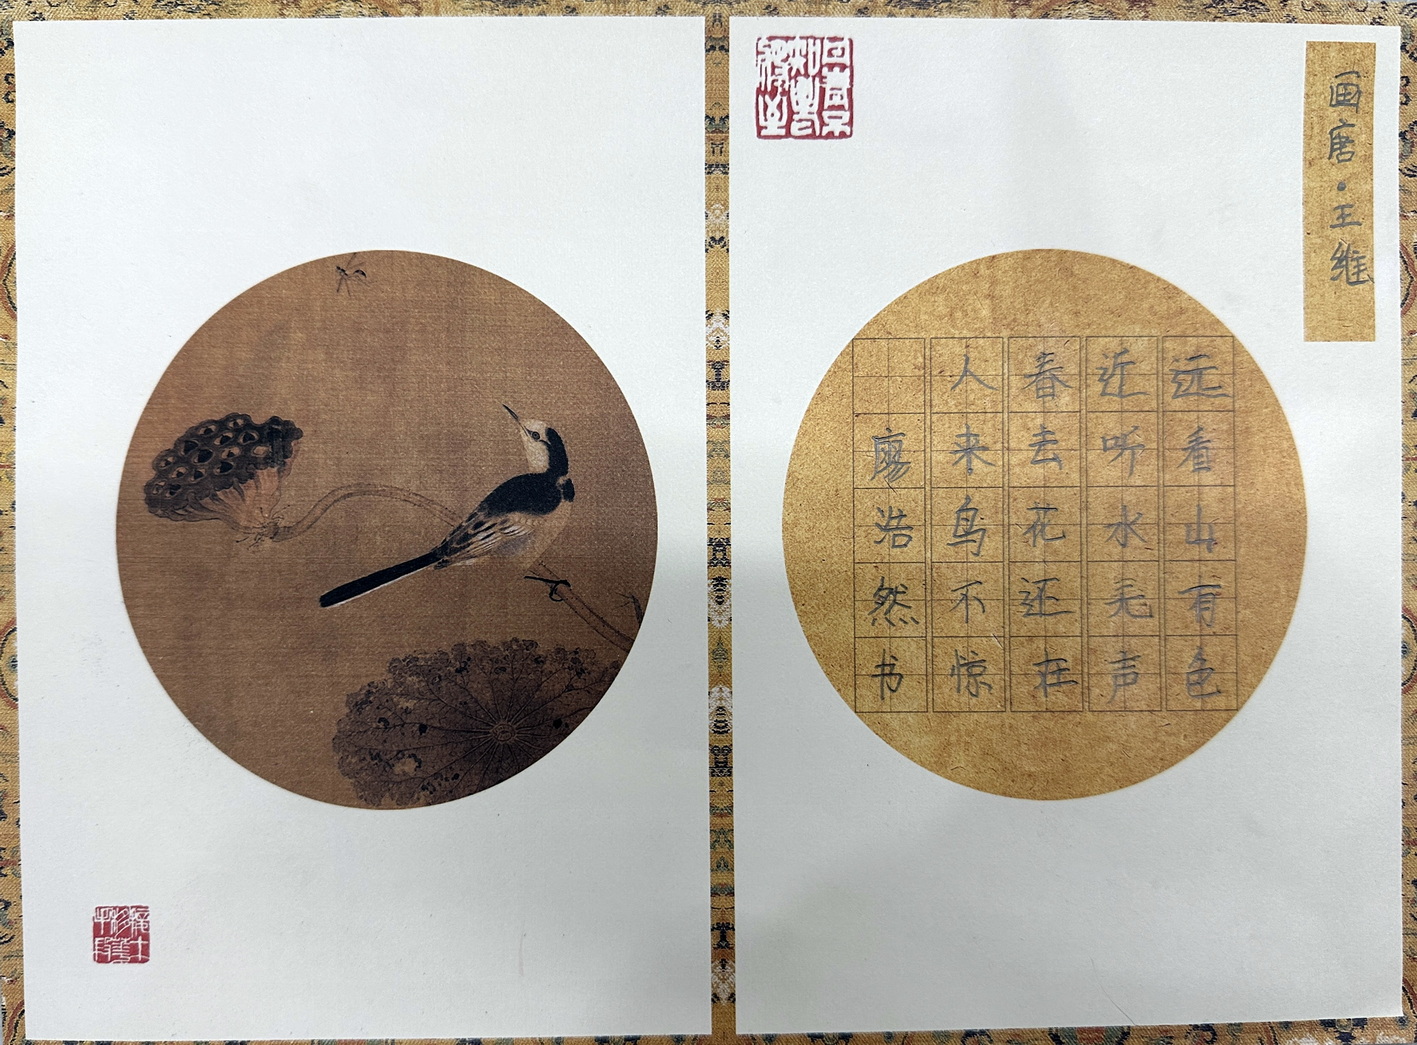 画唐·王维
远看山有色
近听水无声
春去花还在
人来鸟不惊
廖浩然书